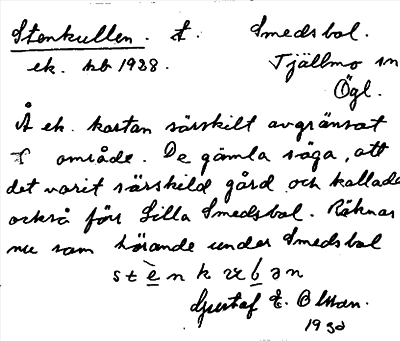 Stenkullen. t. Smedsbol.
ek. kb 1928. Tjällmo sn
Ögl.
Å ek. kartan särskilt avgränsat
område. De gamla säga, att
det varit särskild gård och kallade
också förr Lilla Smedsbol. Räknas
nu som hörande under Smedsbol
Gustaf E. Olsson.